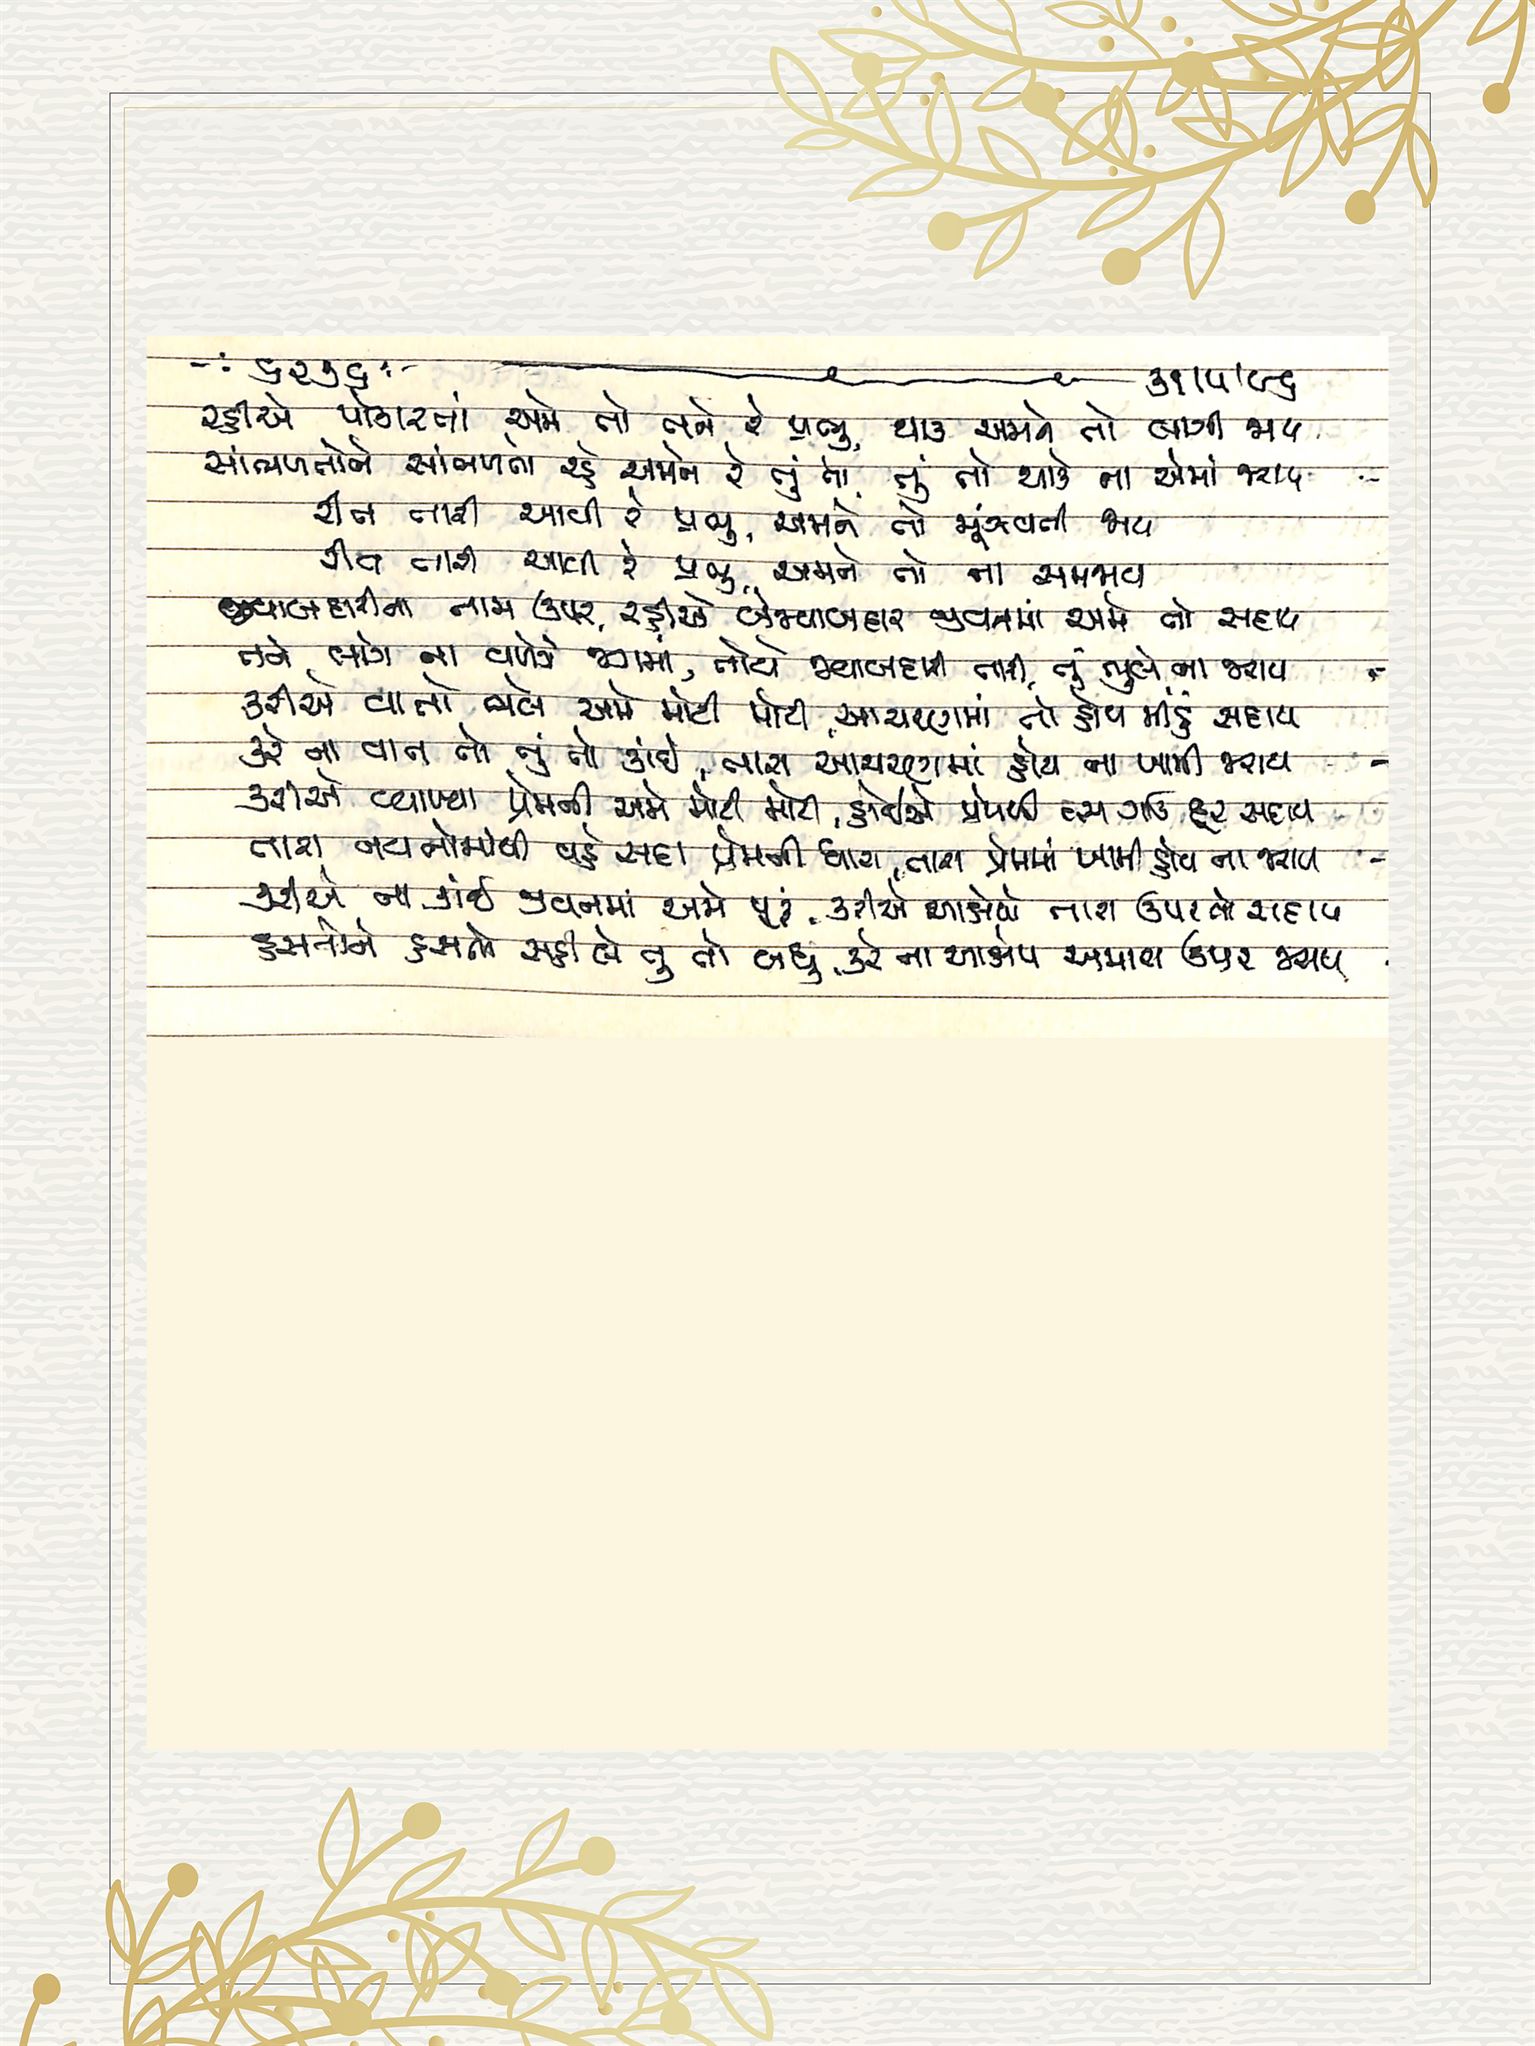 -: ૬૨૩૬ :- ૩૧/૫/૮૬
રહીએ પોકારતાં અમે તો તને રે પ્રભુ, થાક અમને તો લાગી જાય
સાંભળતોને સાંભળતો રહે અમને રે તું તો, તું તો થાકે ના એમાં જરાય
રીત તારી આવી રે પ્રભુ, અમને તો મૂંઝવતી જાય
રીત તારી આવી રે પ્રભુ, અમને તો ના સમજાય
જવાબદારીના નામ ઉપર, રહીએ બેજવાબદાર જીવનમાં અમે તો સદાય
તને લાગે ના વળગે જગમાં, તોયે જવાબદારી તારી, તું ભૂલે ના જરાય
કરીએ વાતો ભલે અમે મોટી મોટી, આચરણમાં તો હોય મીંડું સદાય
કરે ના વાત તો તું તો કાંઈ, તારા આચરણમાં હોય ના ખામી જરાય
કરીએ વ્યાખ્યા પ્રેમની અમે મોટી મોટી, હોઈએ પ્રેમથી દસ ગાઉ દૂર સદાય
તારા નયનોમાંથી વહે સદા પ્રેમની ધારા, તારા પ્રેમમાં ખામી હોય ના જરાય
કરીએ ના કાંઈ જીવનમાં અમે પૂરું, કરીએ આક્ષેપો તારા ઉપર તો સદાય
હસતોને હસતો સહી લે તું તો બધું, કરે ના આક્ષેપ અમારા ઉપર જરાય